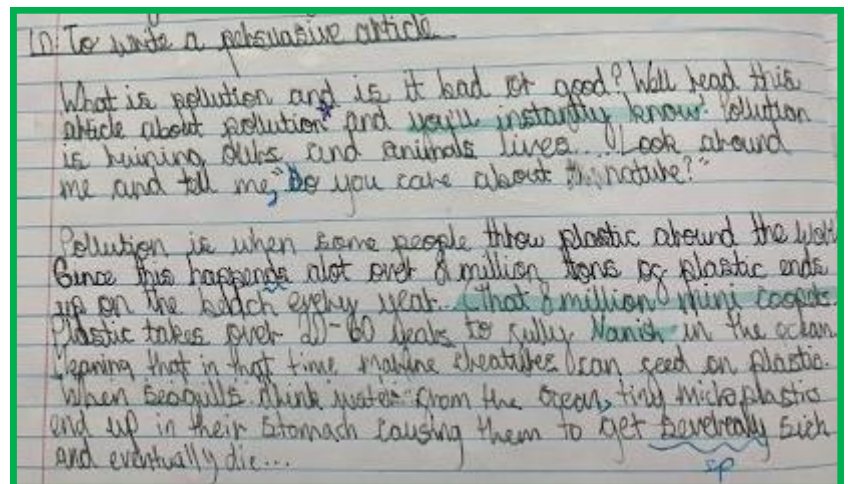 LO: To write a persuasive article.
What is pollution and is it bad or good? Well read this
article about pollution and you'll instantly know. Pollution
is ruining ours and animals lives... Look around
me and tell me, "Do you care about nature?"
Pollution is when some people throw plastic around the
Since this happends alot over 8 million tons of plastic ends
up on the beach every year. That 8 million mini coopers.
Plastic takes over 20-60 years to fully Vanish in the ocean
Meaning that in that time marine creatures can feed on plastic.
When seagulls drink water from the Ocean, tiny microplastic
end up in their stomach causing them to get severeally sick
and eventually die...
sp